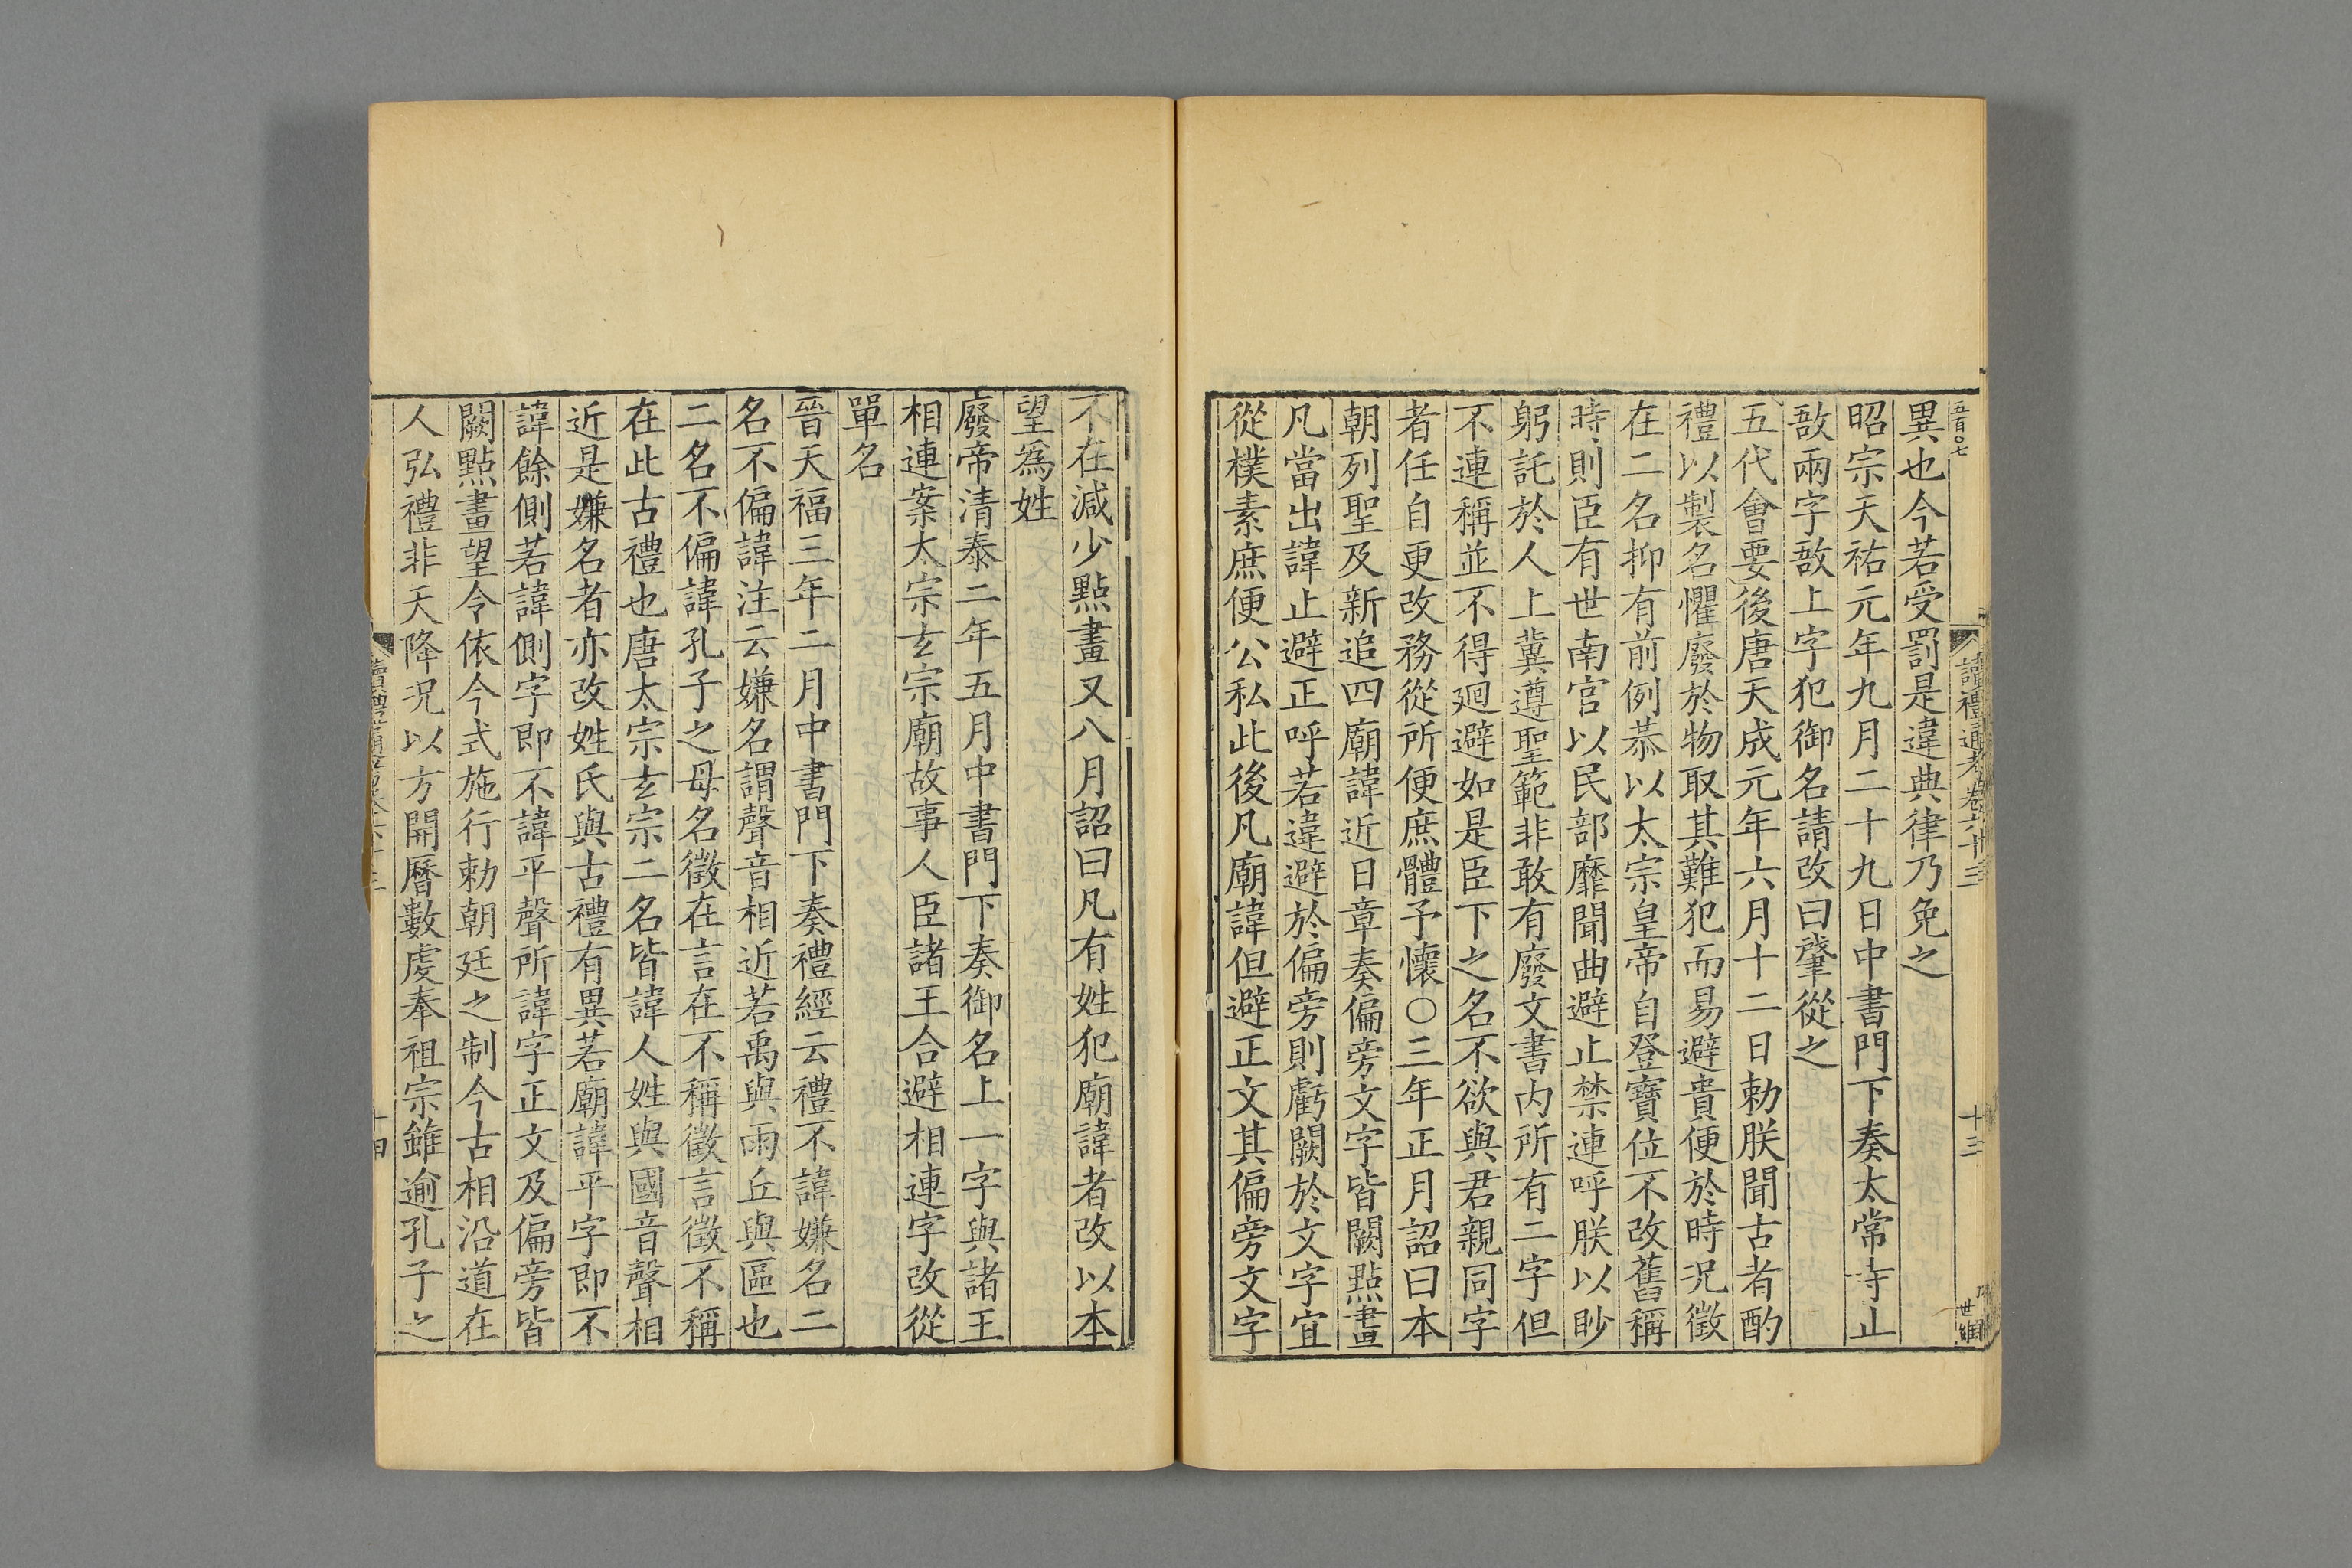 五百〇七
讀禮通考卷六十三
十三
異也今若受罰是違典律乃免之
昭宗天祐元年九月二十九日中書門下奏太常寺止
敔兩字敔上字犯御名請改曰肇從之
五代會要後唐天成元年六月十二日勅朕聞古者酌
禮以製名懼廢於物取其難犯而易避貴便於時況徵
在二名抑有前例恭以太宗皇帝自登寶位不改舊稱
時則臣有世南官以民部靡聞曲避止禁連呼朕以眇
躬託於人上冀遵聖範非敢有廢文書內所有二字但
不連稱並不得迴避如是臣下之名不欲與君親同字
者任自更改務從所便庶體予懷〇三年正月詔曰本
朝列聖及新追四廟諱近日章奏偏旁文字皆闕點畫
凡當出諱止避正呼若違避於偏旁則虧闕於文字宜
從樸素庶便公私此後凡廟諱但避正文其偏旁文字
不在減少點畫又八月詔曰凡有姓犯廟諱者改以本
望為姓
廢帝清泰二年五月中書門下奏御名上一字與諸王
相連案太宗玄宗廟故事人臣諸王合避相連字改從
單名
晉天福三年二月中書門下奏禮經云禮不諱嫌名二
名不偏諱注云嫌名謂聲音相近若禹與雨丘與區也
二名不偏諱孔子之母名徵在言在不稱徵言徵不稱
在此古禮也唐太宗玄宗二名皆諱人姓與國音聲相
近是嫌名者亦改姓氏與古禮有異若廟諱平字即不
諱餘側若諱側字即不諱平聲所諱字正文及偏旁皆
闕點畫望令依令式施行勅朝廷之制今古相沿道在
人弘禮非天降況以方開曆數虔奉祖宗雖逾孔子之
十四